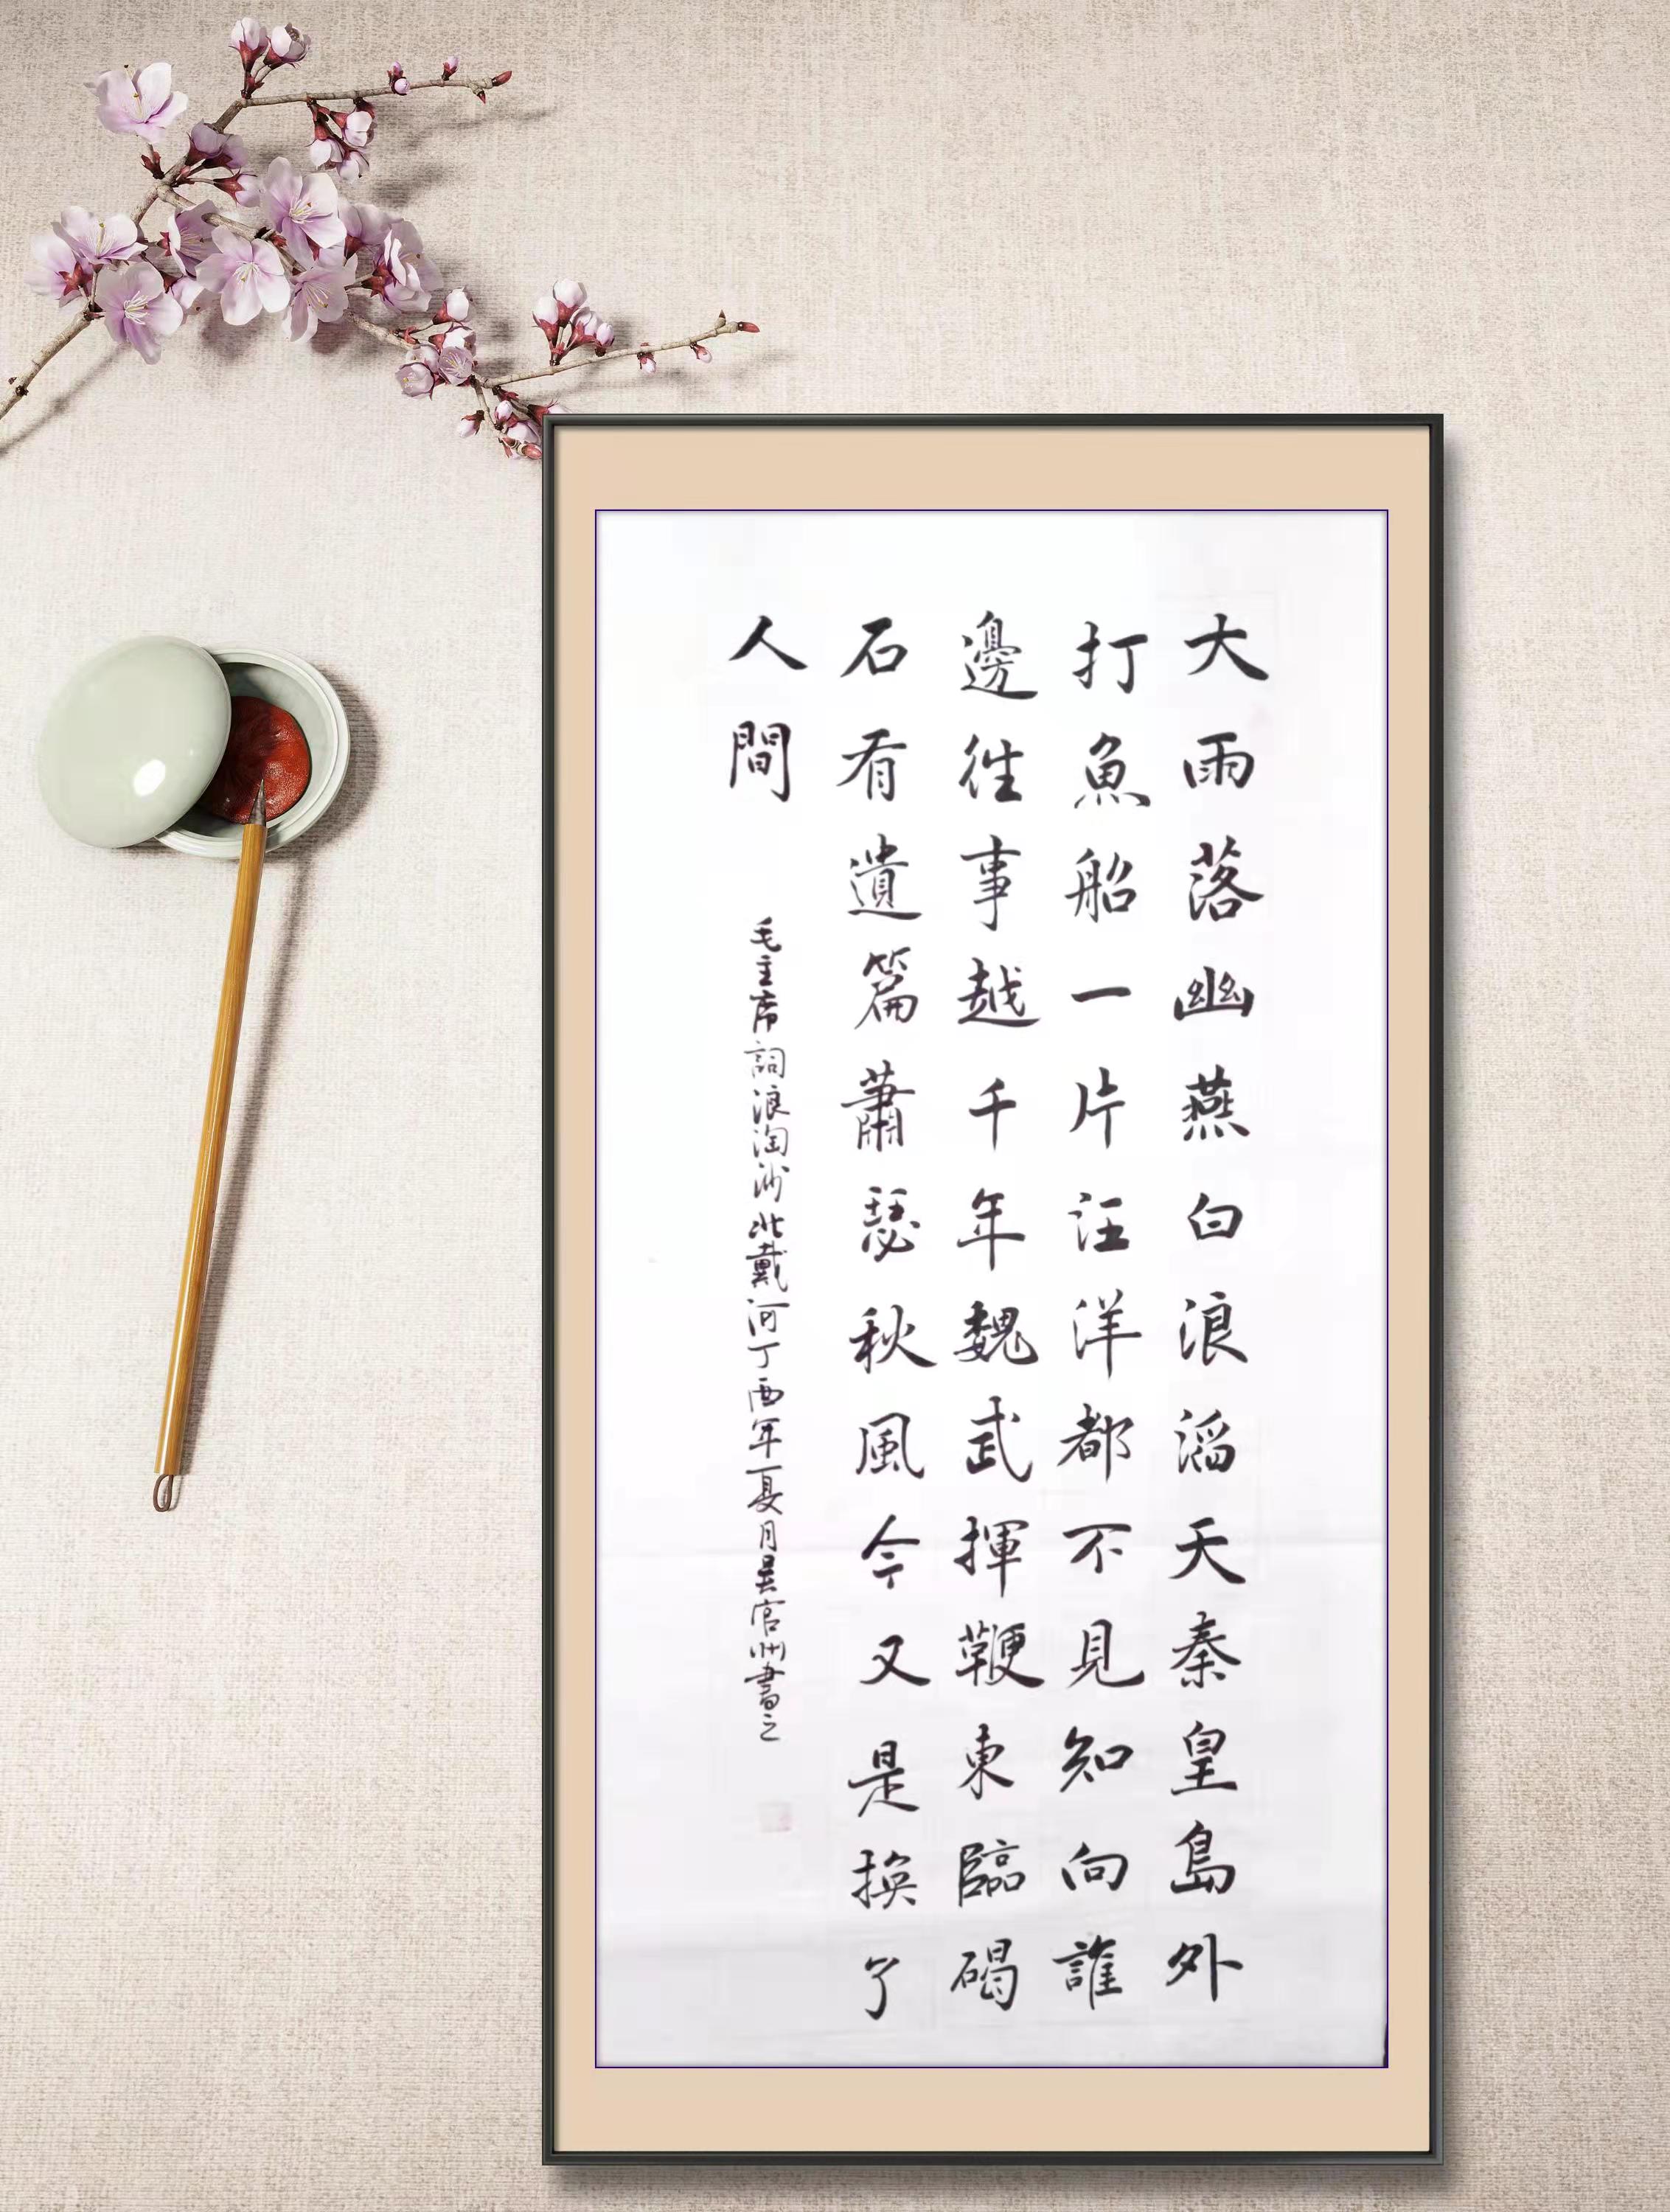 大雨落幽燕白浪滔天秦皇島外
打魚船一片汪洋都不見知向誰
邊往事越千年魏武揮鞭東臨碣
石有遺篇蕭瑟秋風今又是換了
人間
毛主席詞浪淘沙北戴河丁酉年夏月吴官州書之